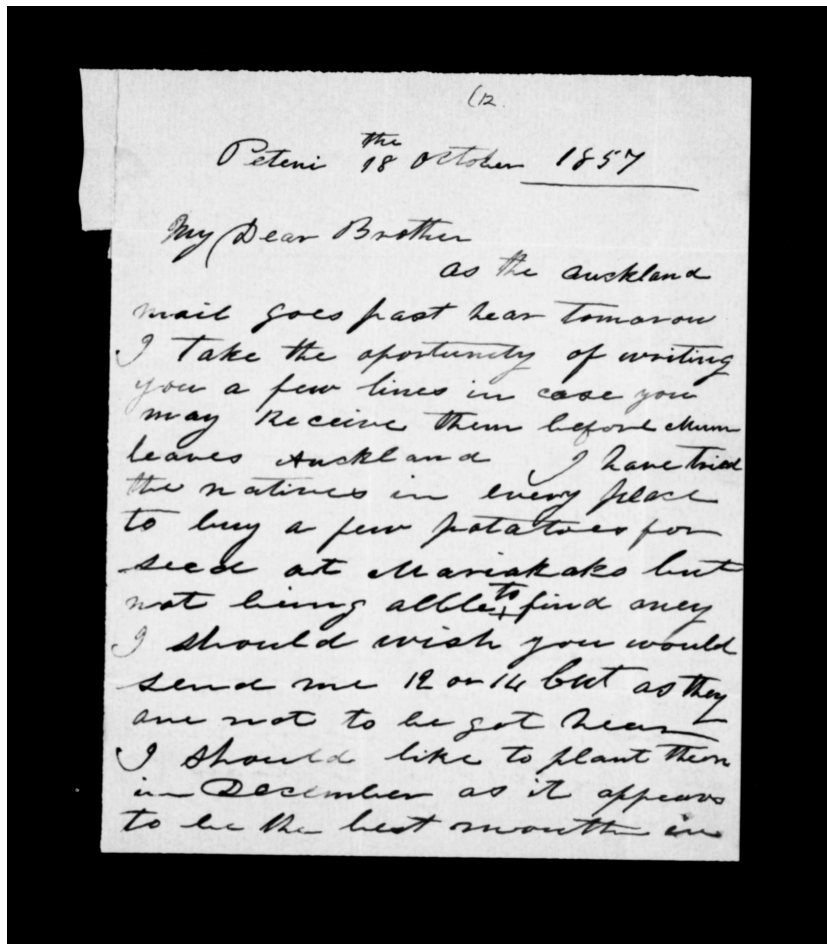 (12.
Peteni 18 the October 1857
My Dear Brother
as the Auckland
mail goes past hear tomorow
I take the oportunity of writing
you a few lines in case you
may Receive them before Mum
leaves Auckland I have tried
the natives in every place
to buy a few potatoes for
seed at Mariakako but
not being alble to find aney
I should wish you would
send me 12 or 14 Cwt as they
are not to be got hear
I should like to plant them
in December as it appears
to be the best month in